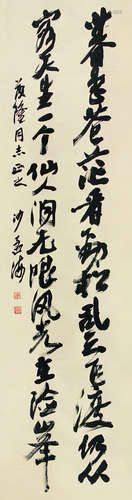 暮色苍茫看劲松乱云飞渡仍从
容天生一个仙人洞无限风光在险峰
同志正之 沙孟海